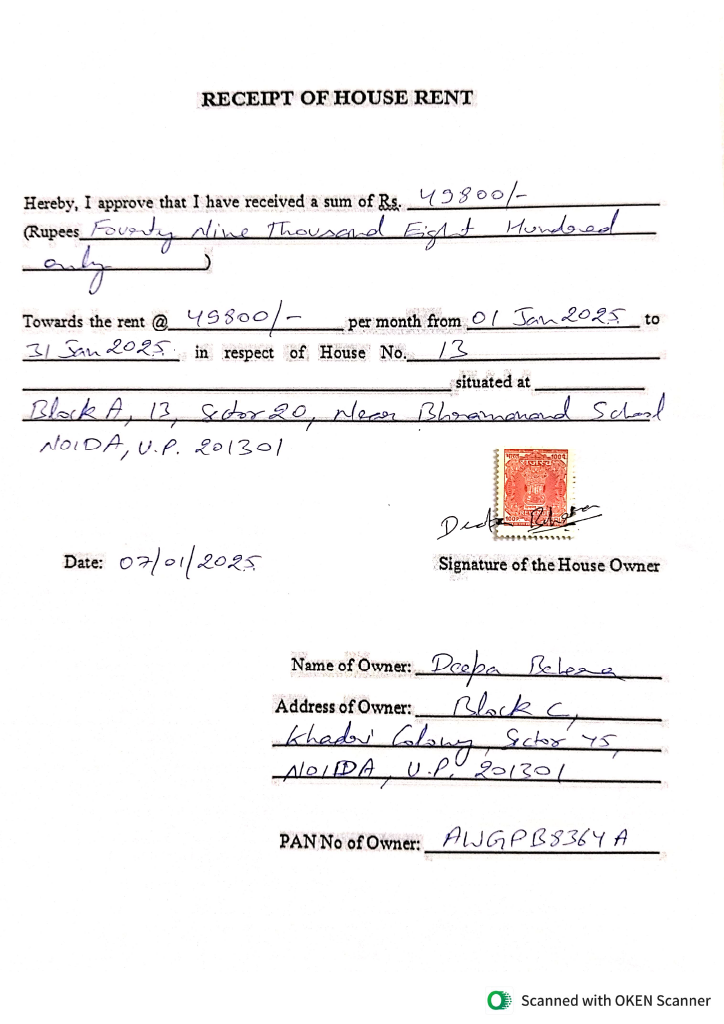 RECEIPT OF HOUSE RENT
Hereby, I approve that I have received a sum of Rs. 49800/-
(Rupees Fourty Nine Thousand Eight Hundred
only )
Towards the rent @ 49800/- per month from 01 Jan 2025 to
31 Jan 2025 in respect of House No. 13
situated at
Block A, 13, Sector 20, Near Bhramanand School
NOIDA, U.P. 201301
Deepa Behera
Date: 07/01/2025
Signature of the House Owner
Name of Owner: Deepa Behera
Address of Owner: Block C,
Khadar Colony, Sector 45,
NOIDA, U.P. 201301
PAN No of Owner: AWGPB8364A
Scanned with OKEN Scanner